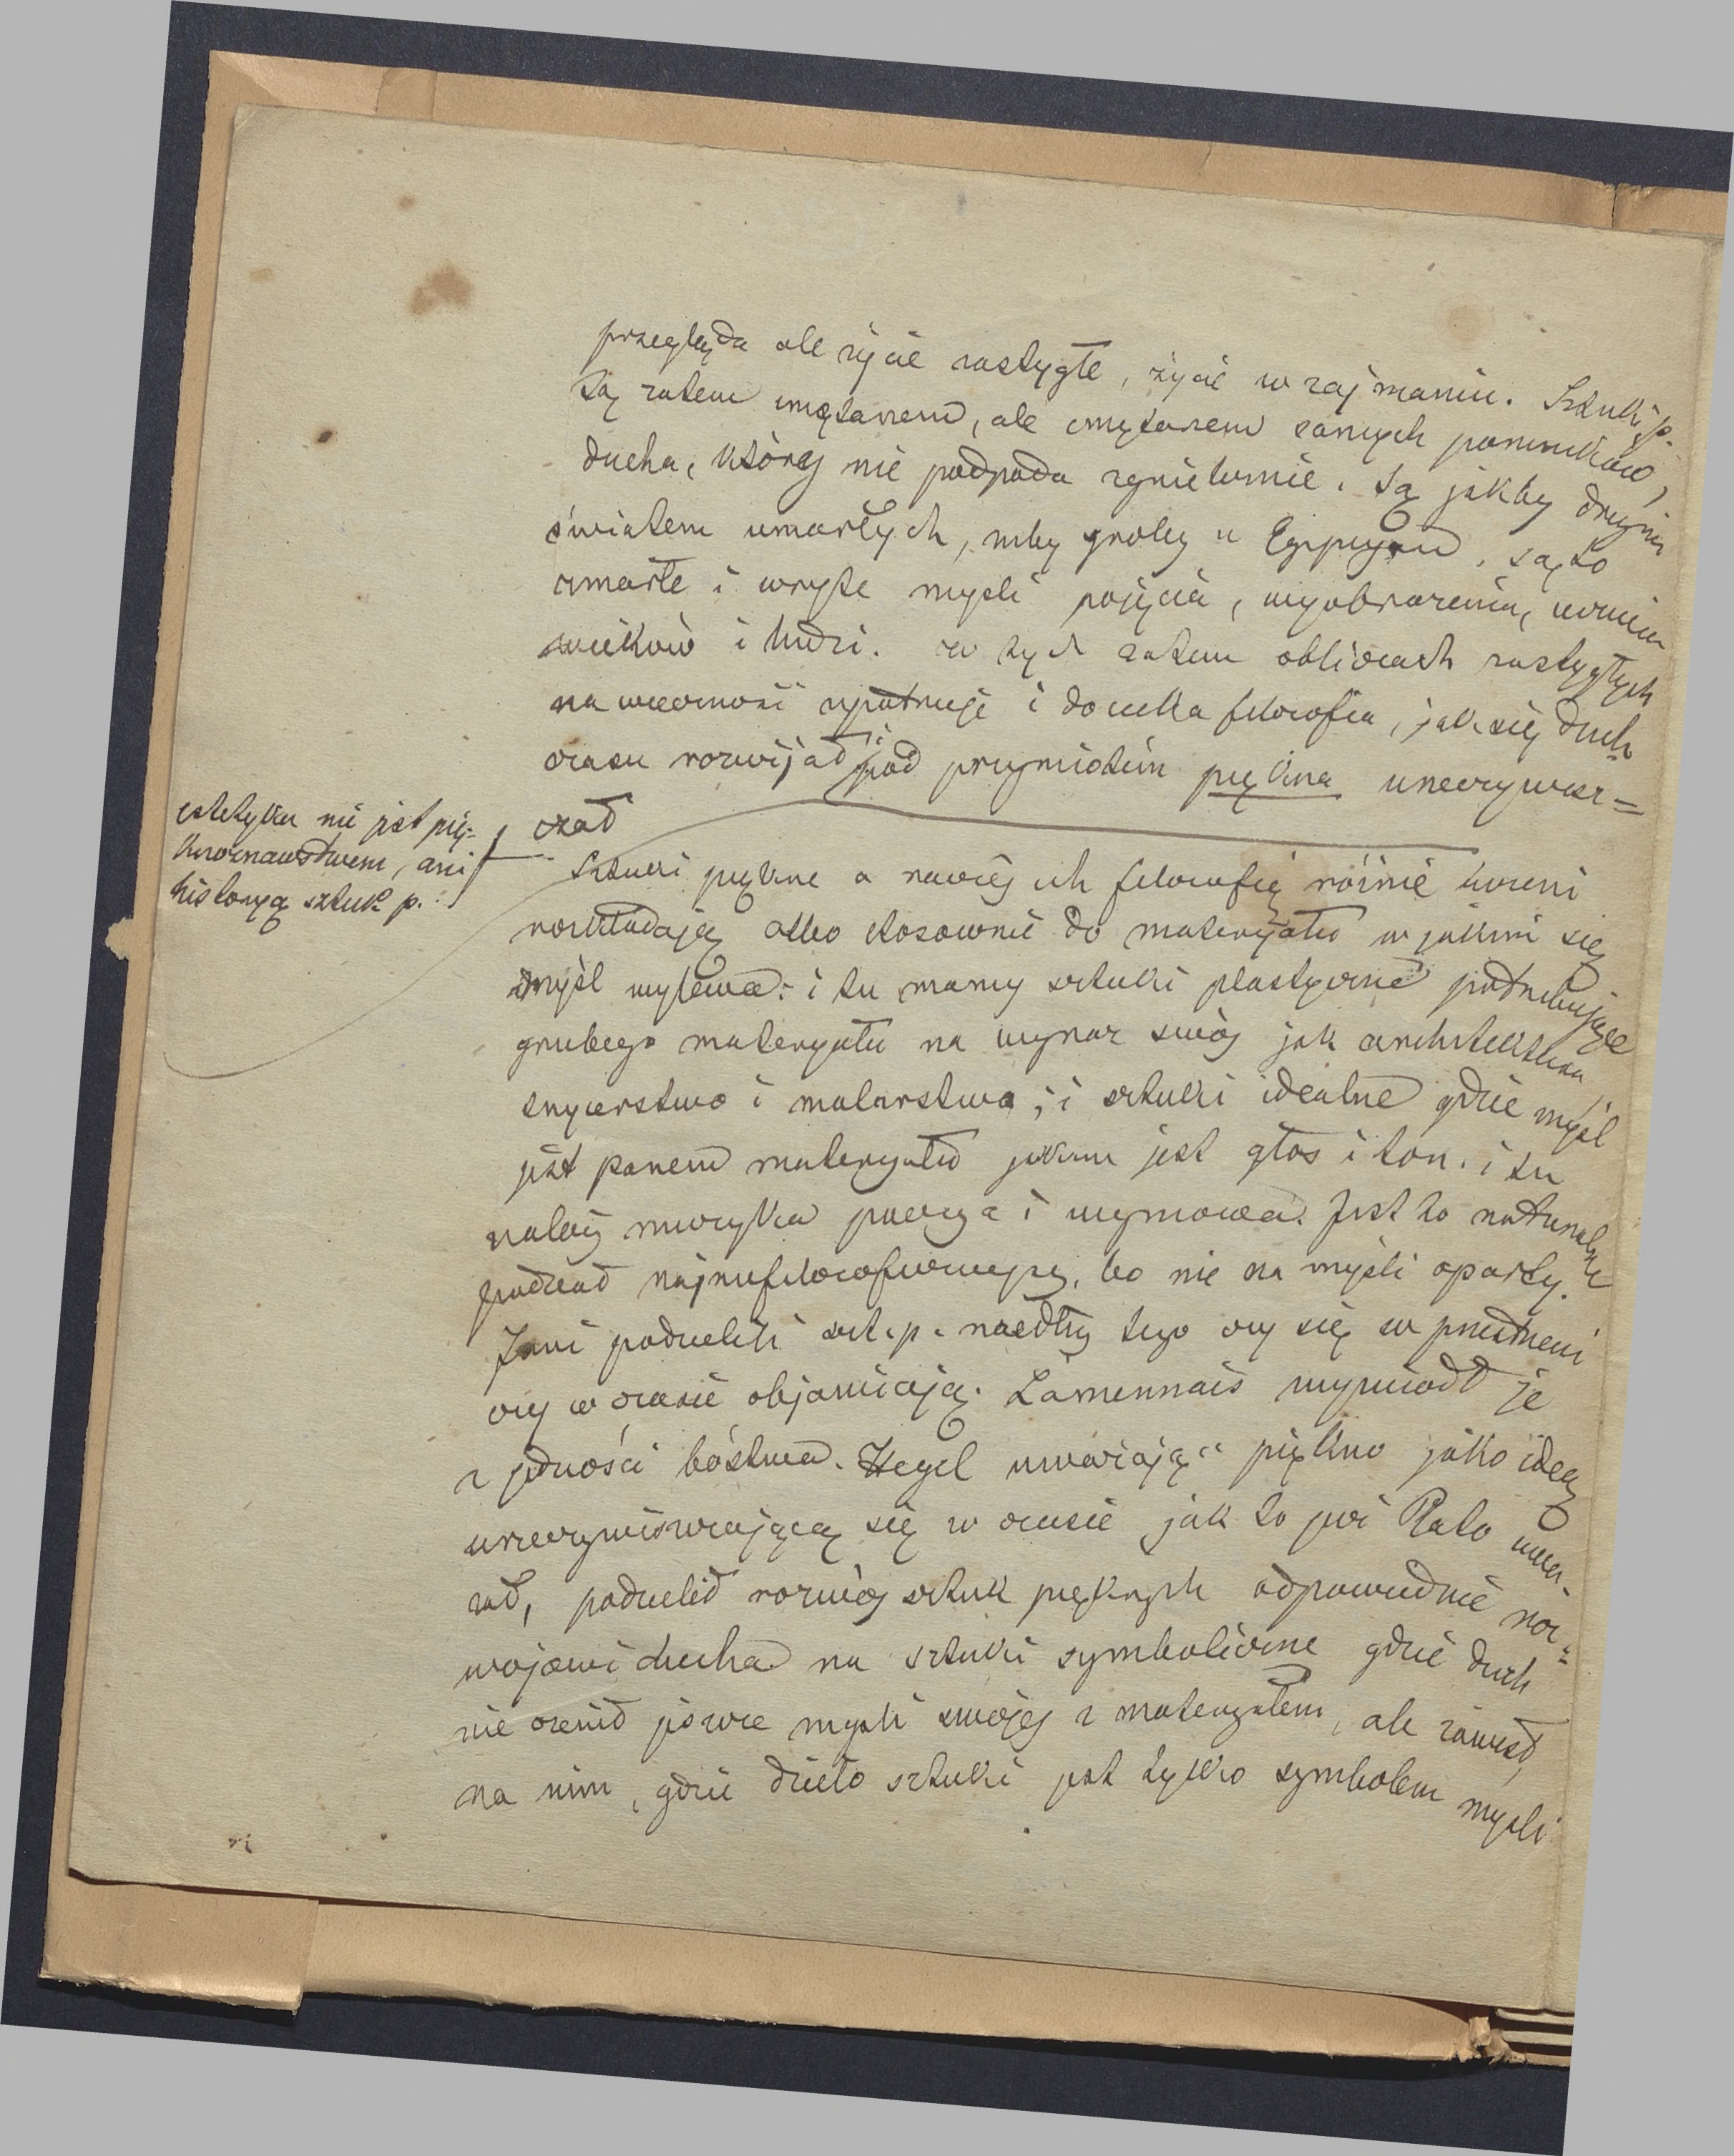 przegląda ale życie zastygłe, życie w zajmaniu. Sztuki p.
są zatem cmętarzem, ale cmętarzem samych pomników,
ducha, której nie podpada zgnieluznie. są jakby drugim
światem umarłych, niby groby u Egipcyan. są to
umarłe i wryte myśli pojęcia, wyobrażenia, uczucia
wieków i ludzi. w tych zatem obliczach zastygłych
na wieczność upatruje i docieka filozofia, jak się duch
czasu rozwijał i pod przymiotem piękna uneczywisz=
czał
estetyka nie jest pię-
knoznawstwem, ani
historyą sztuk p.
Sztuki piękne a raczéj ich filozofię różnie uczeni
rozkładają albo stosownie do materyału w jakim się
myśl wylewa: i tu mamy sztuki plastyczne potrzebujące
grubego materyału na wyraz swój jak architektura,
snycerstwo i malarstwo; i sztuki idealne gdzie myśl
jest panem materyału jakim jest głos i ton. i tu
należy muzyka poezya i wymowa. Jest to naturalnie
podział najniefilozoficzniejszy, bo nie na myśli oparty.
Inni podzielili szt. p. według tego czy się w przestrzeni
czy w czasie objawiają. Lamennais wywiódł je
z jedności bóstwa. Hegel uważając piękno jako ideę
urzeczywiszczającą się w czasie jak to już Plato uwa-
żał, podzielił rozwój sztuk pięknych odpowiednie roz=
wojowi ducha na sztuki symboliczne gdzie duch
nie ożenił jeszcze myśli swojej z materyałem, ale zawisł
na nim, gdzie dzieło sztuki jest tylko symbolem myśli